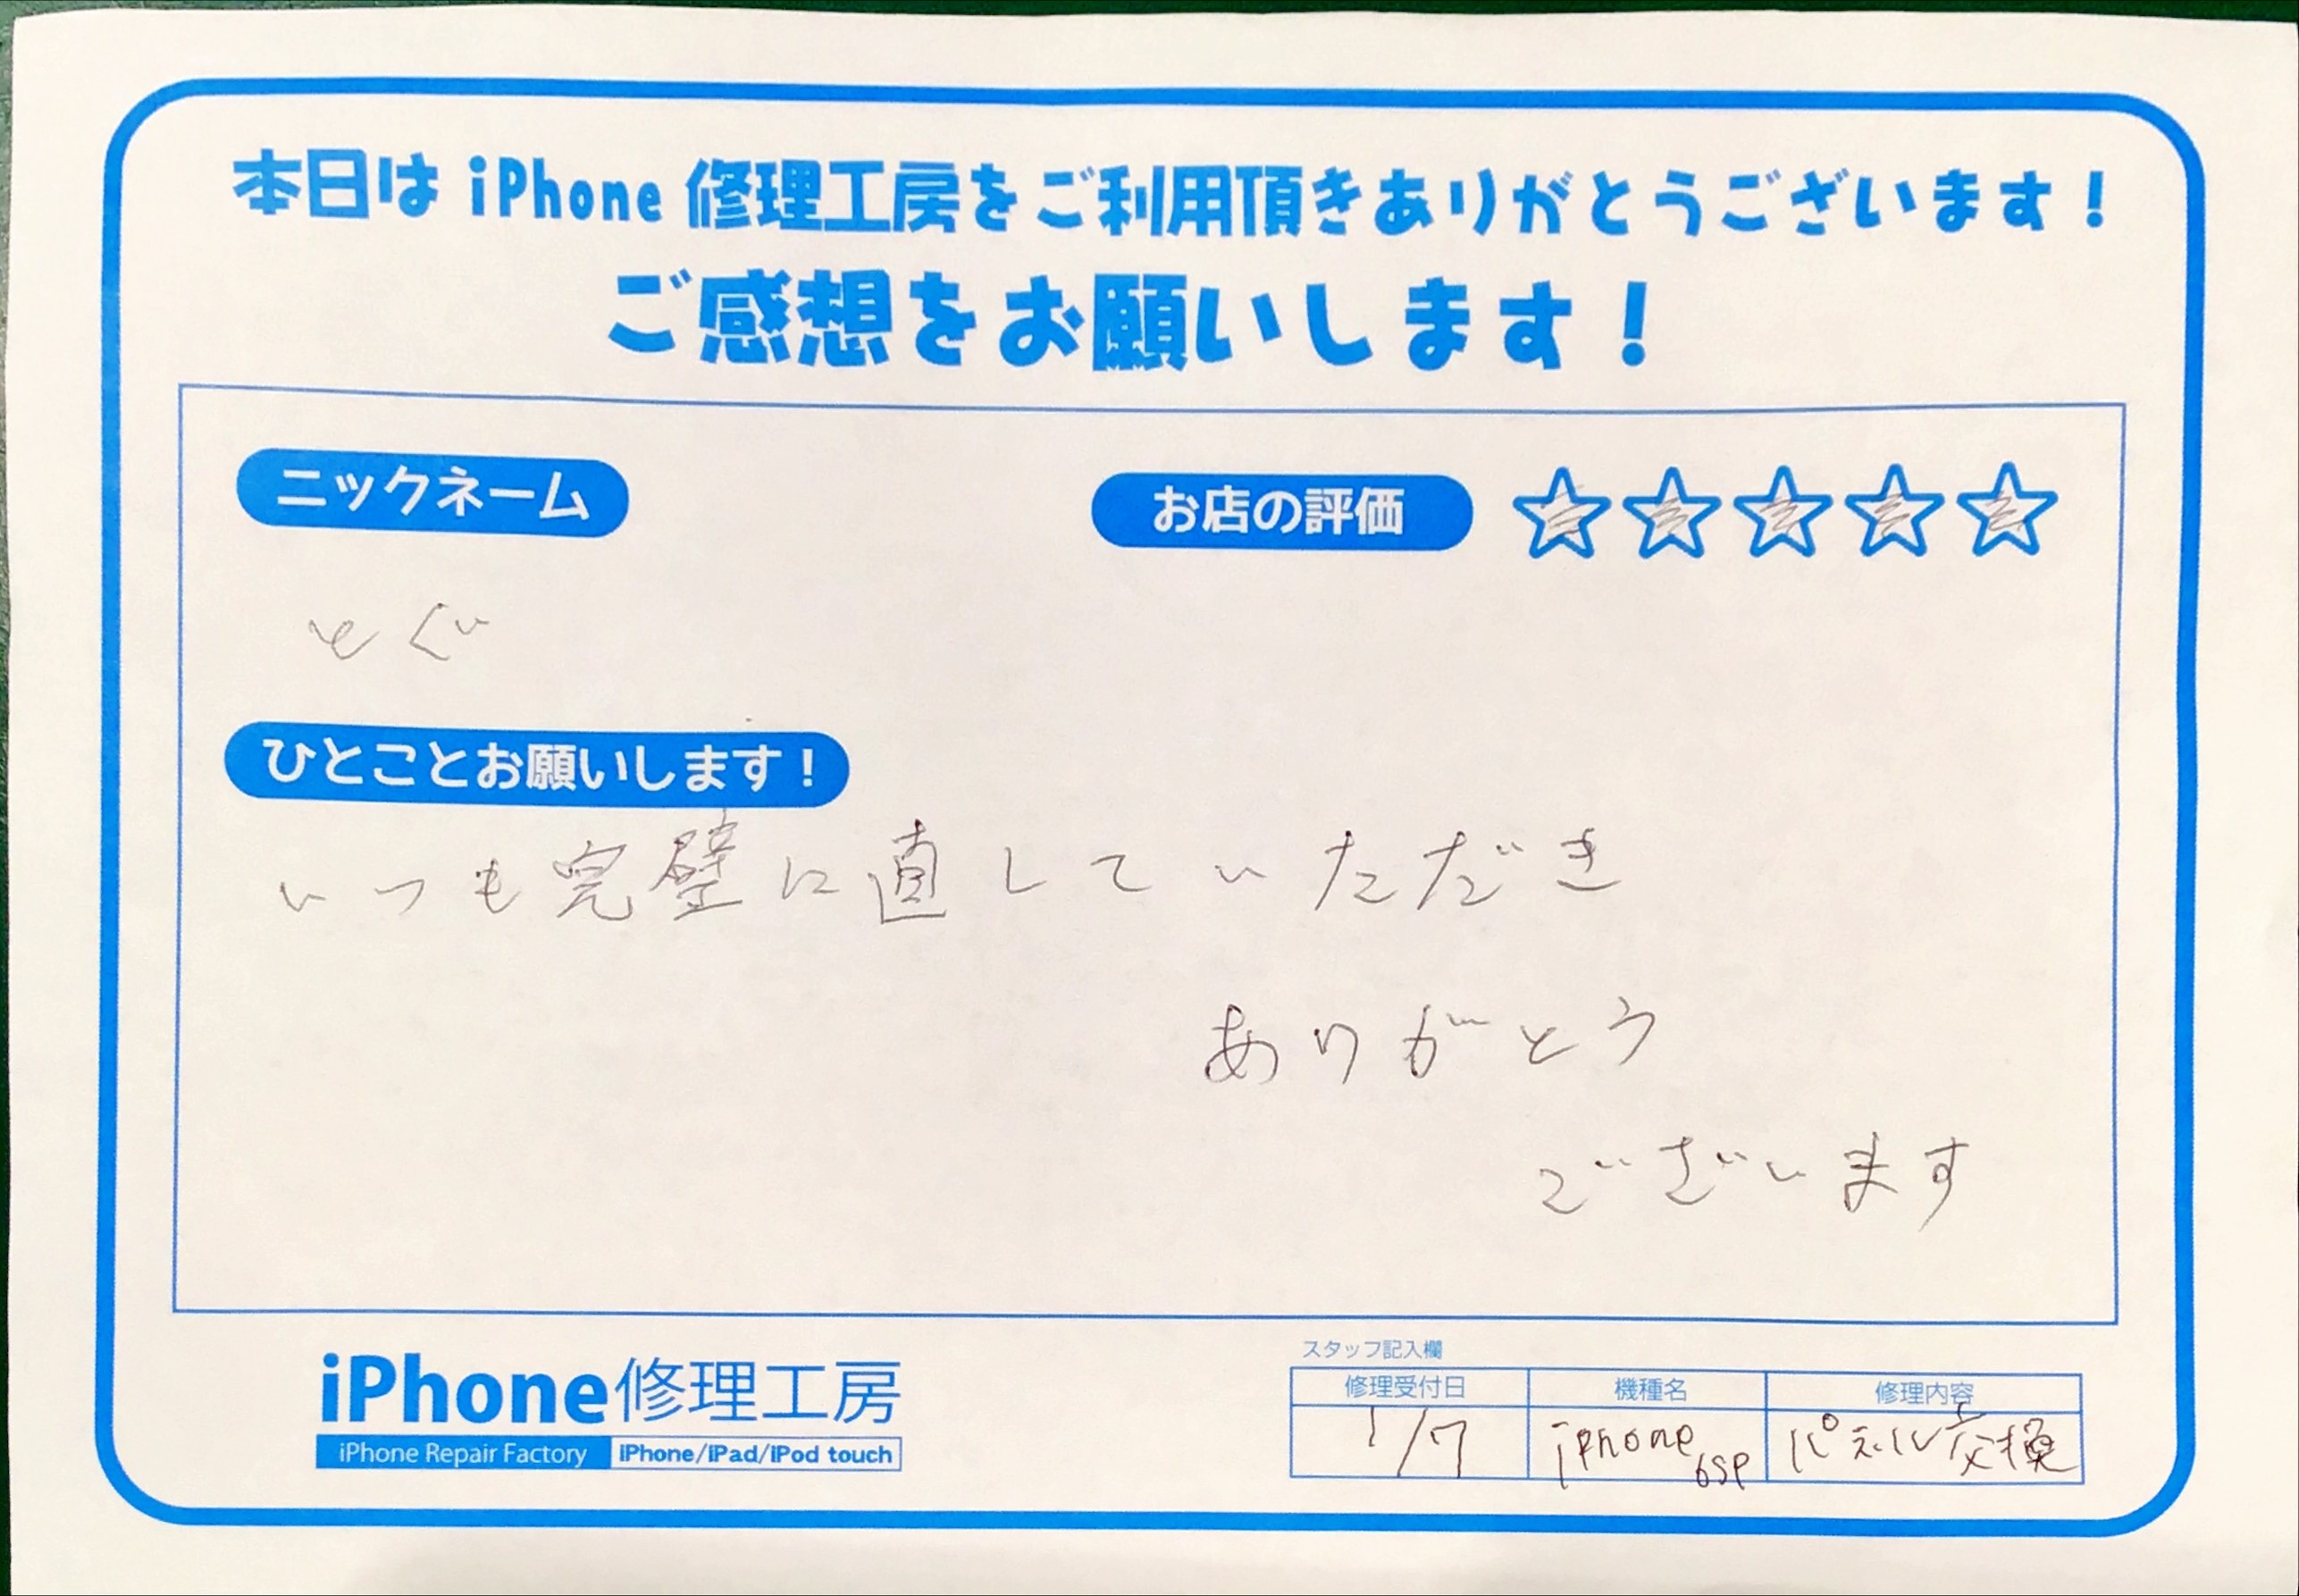 本日は iPhone 修理工房をご利用頂きありがとうございます！
ご感想をお願いします！
ニックネーム
お店の評価 ☆☆☆☆☆
とぐ
ひとことお願いします！
いつも完璧に直していただき
ありがとう
ございます
iPhone修理工房
iPhone Repair Factory iPhone/iPad/iPod touch
スタッフ記入欄
修理受付日 機種名 修理内容
1/7 iphone 6sp パネル交換